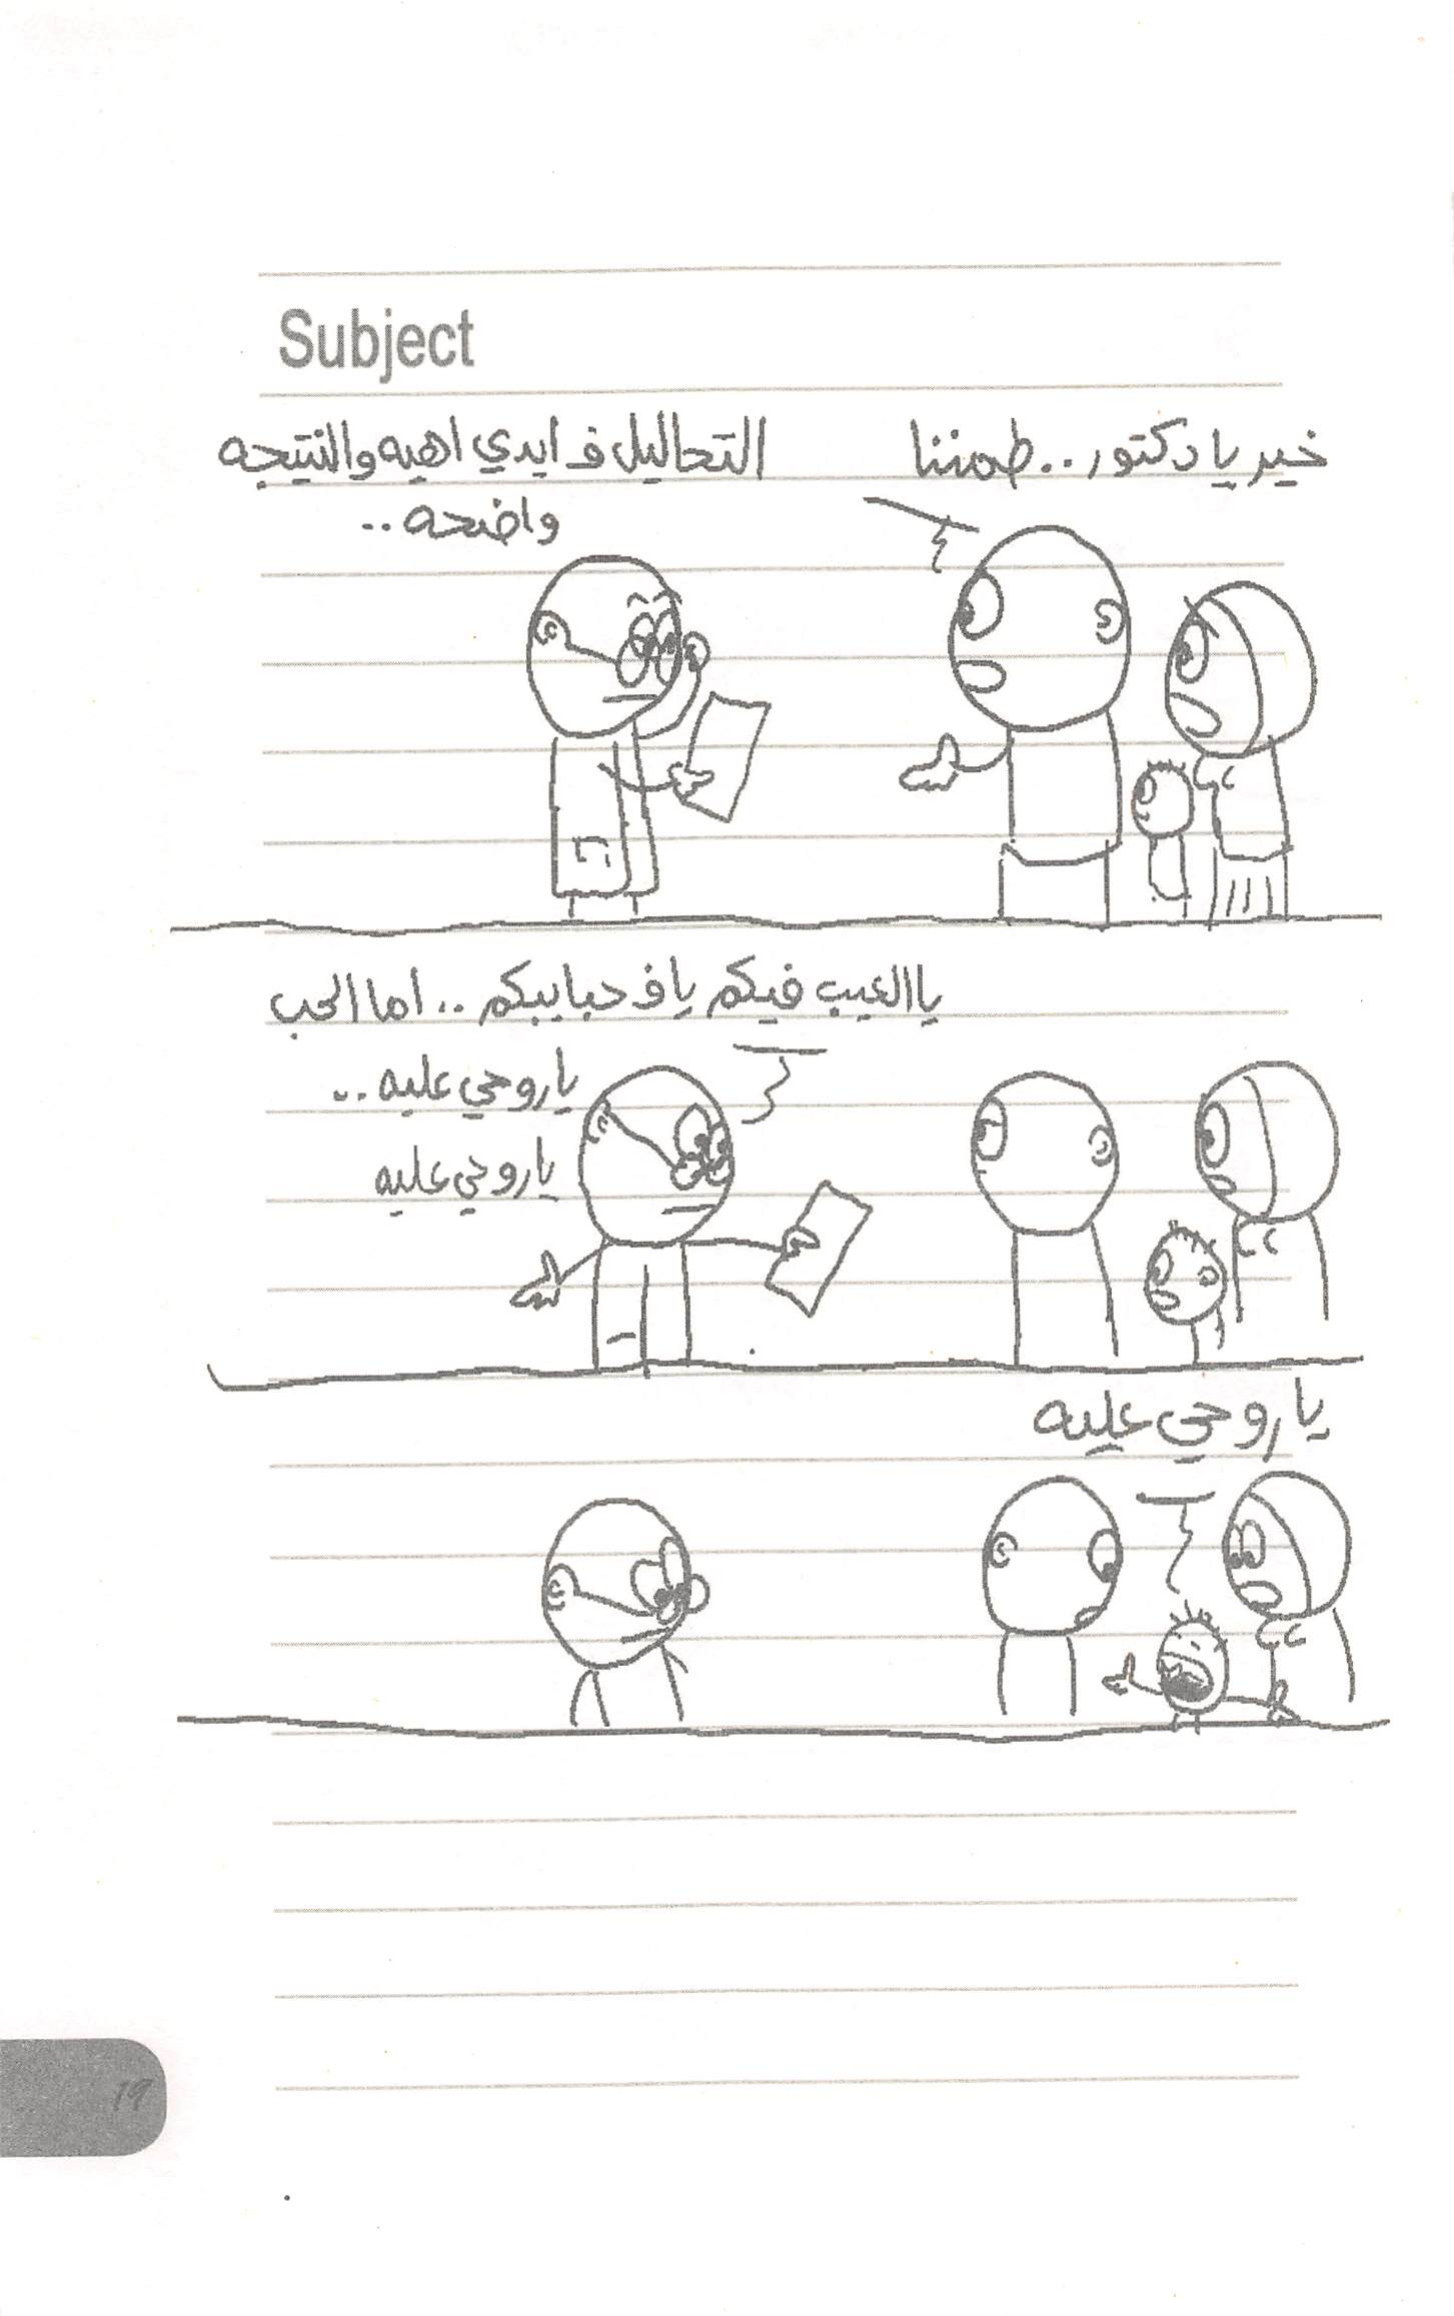 Subject
خير يا دكتور.. طمننا
التحاليل ف ايدي اهيه والنتيجه
واضحه..
يا العيب فيكم يا ف حبايبكم.. اما الحب
يا روحي عليه..
يا روحي عليه
يا روحي عليه
19